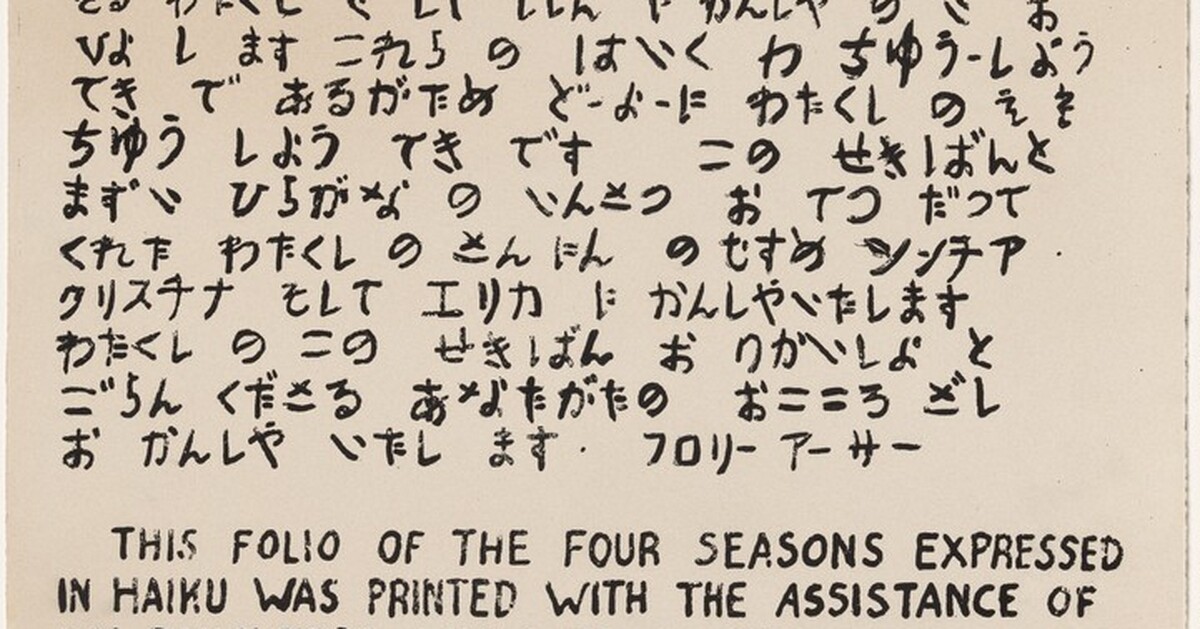 さる わたくし で し かんしや の お
ひよ し ます これら の はいく わ ちゆう-しよう
てき で あるがため ど-よ-に わたくし の え も
ちゆう しよう てき です この せきばんと
まずい ひらがな の いんさつ お てつ だって
くれた わたくし の さんにん のむすめ シンチア・
クリスチナ そして エリカ に かんしやいたします
わたくし の この せきばん お りがいしよ と
ごらん くださる あなたがたの おこころ ざし
お かんしや いたし ます・ フロリー アーサー
THIS FOLIO OF THE FOUR SEASONS EXPRESSED
IN HAIKU WAS PRINTED WITH THE ASSISTANCE OF